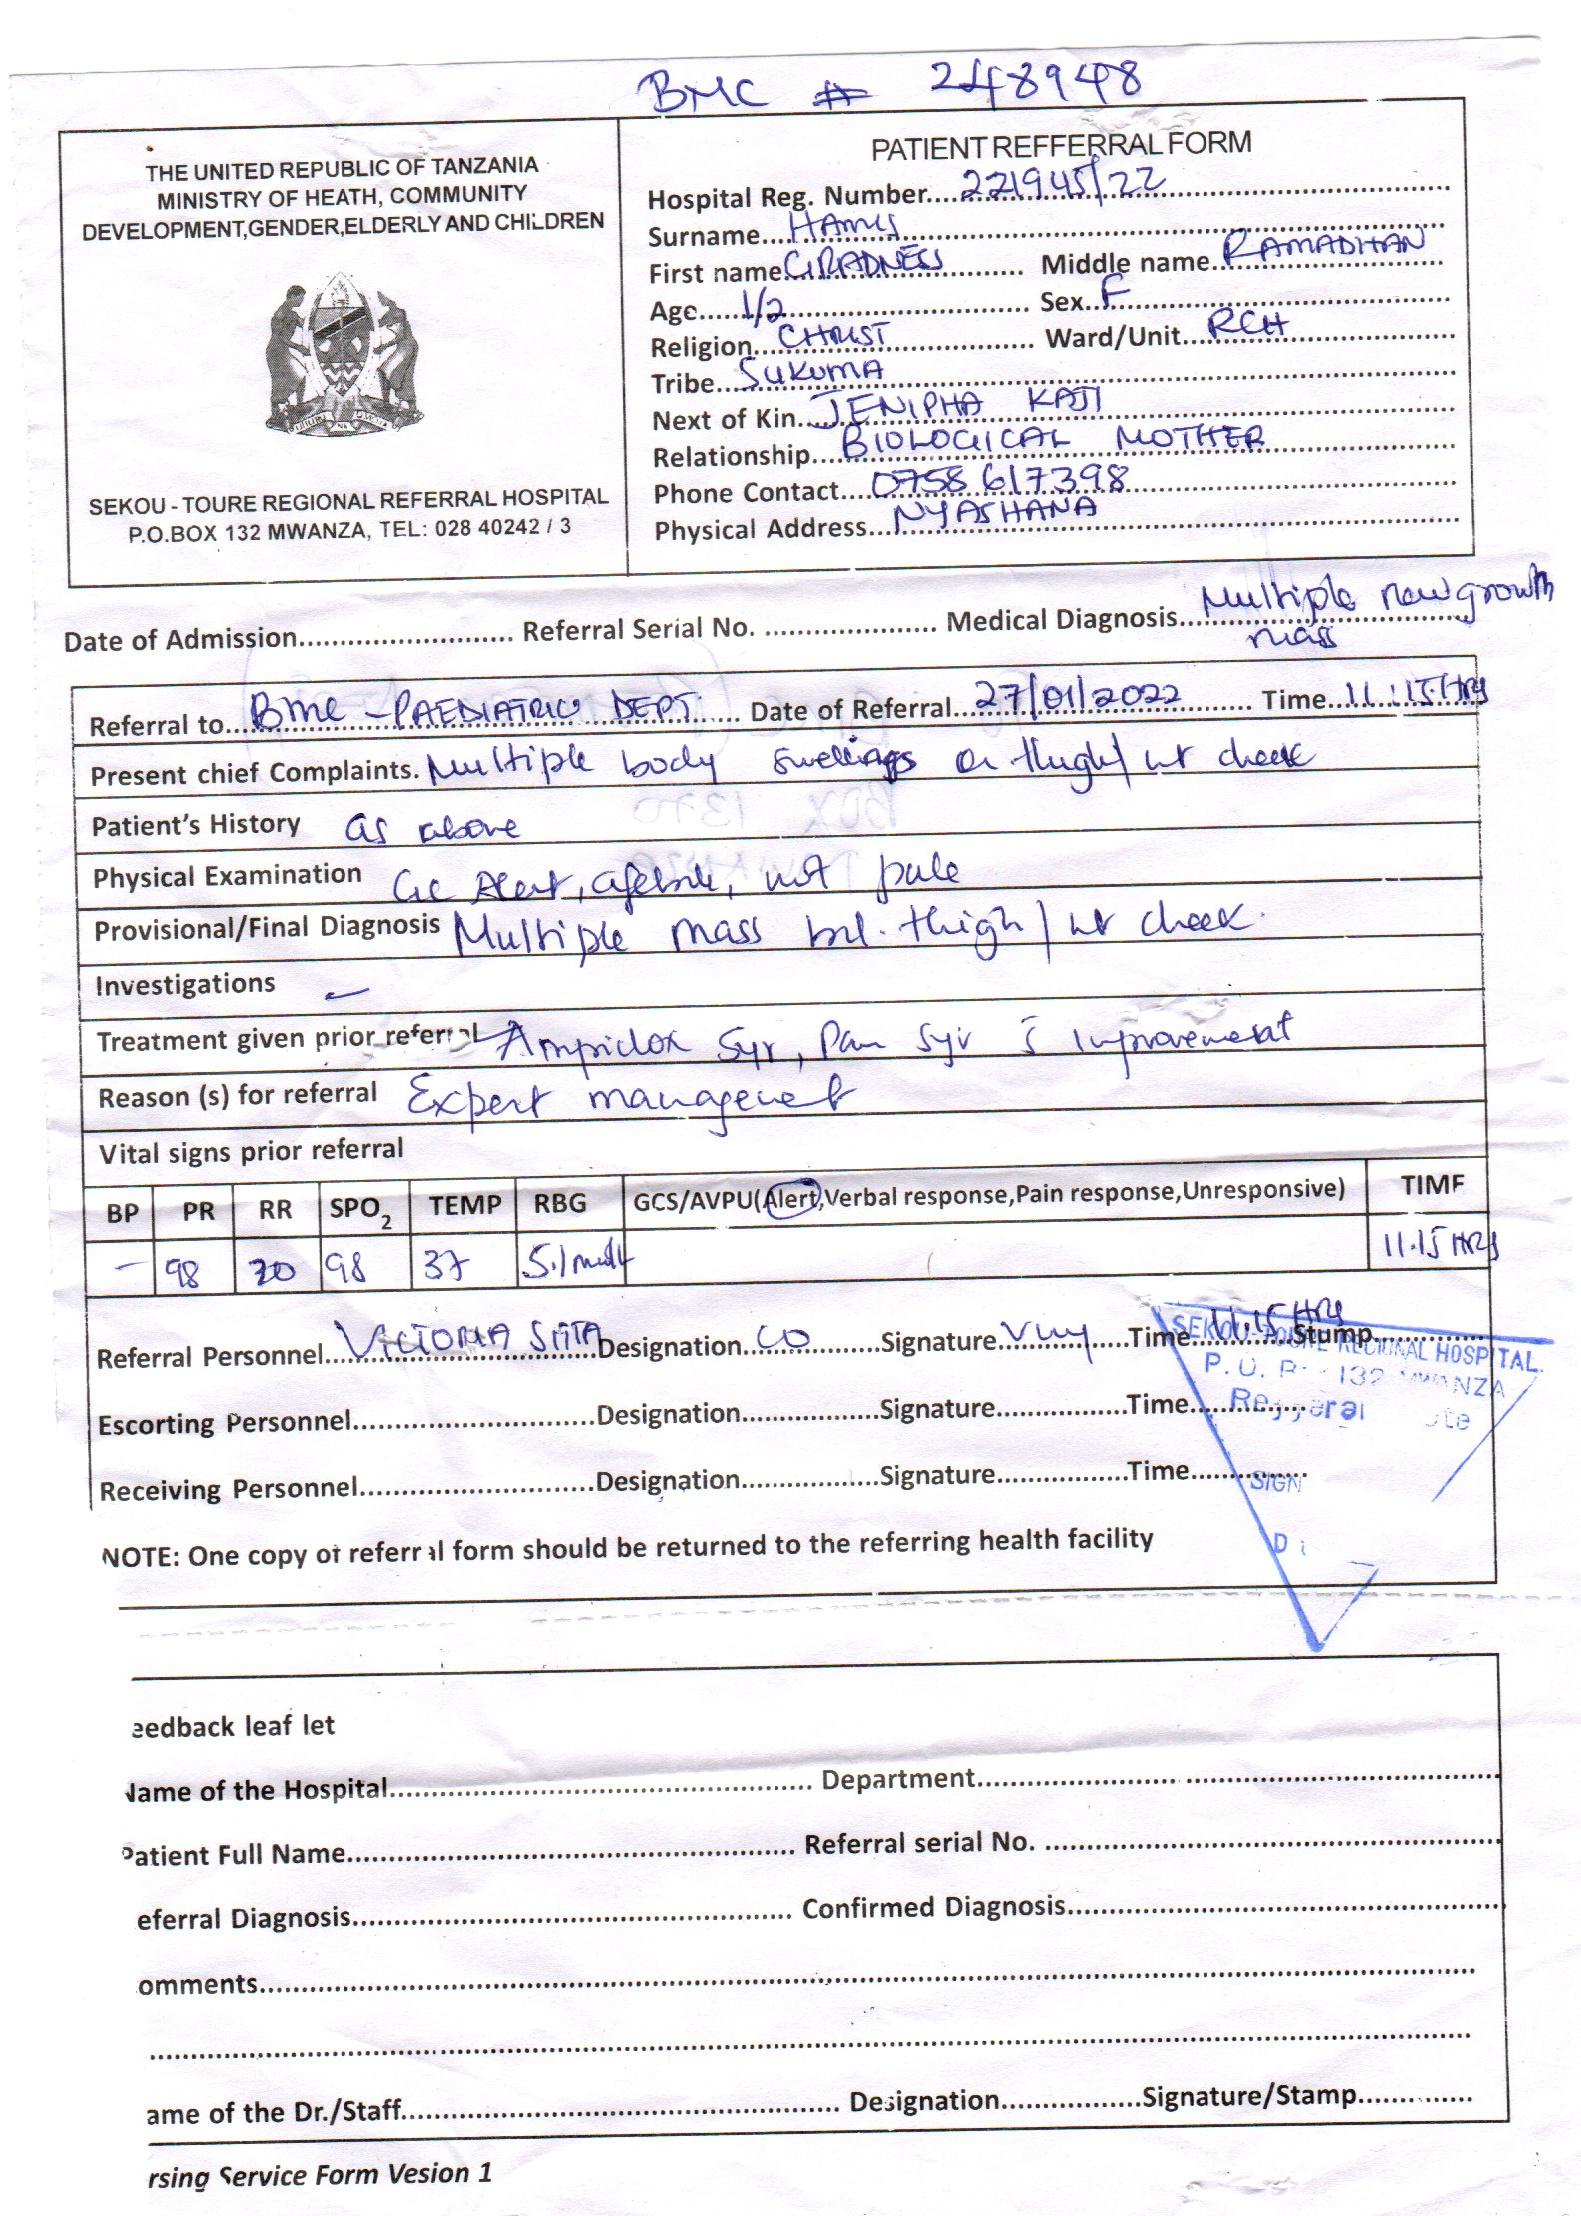 BMC # 248948
THE UNITED REPUBLIC OF TANZANIA
MINISTRY OF HEATH, COMMUNITY
DEVELOPMENT,GENDER,ELDERLY AND CHILDREN
SEKOU - TOURE REGIONAL REFERRAL HOSPITAL
P.O.BOX 132 MWANZA, TEL: 028 40242 / 3
PATIENT REFFERRAL FORM
Hospital Reg. Number....221945/22
Surname....HAMIS
First name GRADNESS Middle name..RAMADHAN
Age......1/2 Sex..F
Religion...CHRIST Ward/Unit...RCH
Tribe...SUKUMA
Next of Kin....JENIPHA KAJI
Relationship....BIOLOGICAL MOTHER
Phone Contact....0758 617398
Physical Address...NYASHANA
Date of Admission.......................... Referral Serial No. ..................... Medical Diagnosis...Multiple new growth
mass
Referral to...BMC - PAEDIATRIC DEPT. Date of Referral...27/01/2022 Time...11:15 HRS
Present chief Complaints. Multiple body swellings on thigh/ cheek
Patient's History as above
Physical Examination GC Alert, afebrile, not pale
Provisional/Final Diagnosis Multiple mass thigh / cheek.
Investigations –
Treatment given prior referral Ampiclox Syr, Pan Syr improvement
Reason (s) for referral Expert management
Vital signs prior referral
BP PR RR SPO2 TEMP RBG GCS/AVPU(Alert,Verbal response,Pain response,Unresponsive) TIMF
– 98 20 98 37 5.1 11.15 HRS
Referral Personnel...VICTORIA Designation..CO Signature Time..11.15 HRS Stump
Escorting Personnel.............................Designation.................Signature................Time............
SEKOU-TOURE REGIONAL HOSPITAL.
P. O. 132 MWANZA
Receiving Personnel............................Designation................Signature..................Time............
SIGN
NOTE: One copy of referral form should be returned to the referring health facility
eedback leaf let
Name of the Hospital.................................................... Department.................................................
Patient Full Name.................................................... Referral serial No. ..................................................
eferral Diagnosis.................................................... Confirmed Diagnosis..................................................
omments..........................................................................................................
ame of the Dr./Staff.................................................... Designation.................Signature/Stamp..............
rsing Service Form Vesion 1